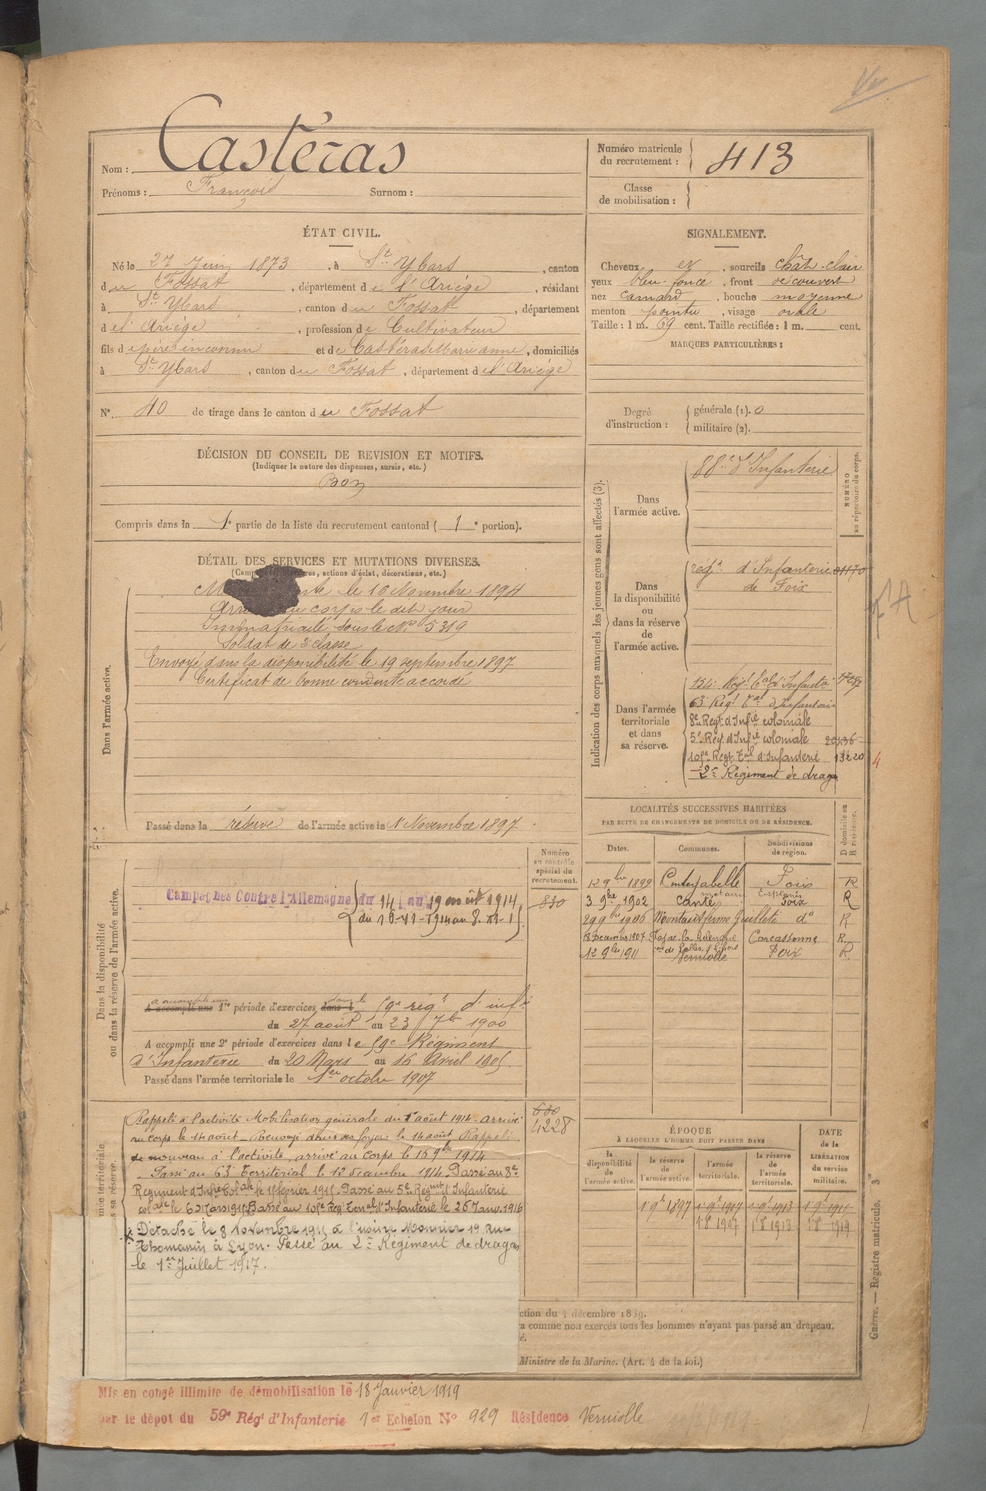 Nom : Castéras
Prénoms : François Surnom :
Numéro matricule du recrutement : 413
Classe de mobilisation :
ÉTAT CIVIL.
Né le 27 Juin 1873, à St Ybars, canton
du Fossat, département de l'Ariège, résidant
à St Ybars, canton du Fossat, département
de l'Ariège, profession de Cultivateur
fils de père inconnu et de Castéras Marianne, domiciliés
à St Ybars, canton du Fossat, département de l'Ariège
N° 40 de tirage dans le canton du Fossat
SIGNALEMENT.
Cheveux et, sourcils chât-clair
yeux bleu foncé, front découvert
nez camard, bouche moyenne
menton pointu, visage ovale
Taille : 1 m. 69 cent. Taille rectifiée : 1 m. cent.
MARQUES PARTICULIÈRES :
Degré d'instruction : générale (1). 0
militaire (2).
DÉCISION DU CONSEIL DE REVISION ET MOTIFS.
(Indiquer la nature des dispenses, sursis, etc.)
Bon
Compris dans la 1e partie de la liste du recrutement cantonal ( 1e portion).
DÉTAIL DES SERVICES ET MUTATIONS DIVERSES.
actions d'éclat, décorations, etc.)
le 16 Novembre 1894
au corps le dit jour
Immatriculé sous le N° 5319
Soldat de 2e classe
Envoyé dans la disponibilité le 19 septembre 1897
Certificat de bonne conduite accordé
Dans l'armée active.
Passé dans la réserve de l'armée active le 1 Novembre 1897
Indication des corps auxquels les jeunes gens sont affectés (3).
NUMÉRO au répertoire du corps.
Dans l'armée active.
88e d'Infanterie
Dans la disponibilité ou dans la réserve de l'armée active.
régt d'Infanterie
de Foix
Dans l'armée territoriale et dans sa réserve.
134e Régt tal d'Infanterie
63 Régt tal d'Infanterie
8e Regt d'Infie coloniale
5e Reg. d'Infie coloniale
Regt Tal d'Infanterie 13220
2e Régiment de drag
LOCALITÉS SUCCESSIVES HABITÉES
PAR SUITE DE CHANGEMENTS DE DOMICILE OU DE RÉSIDENCE.
Dates. Communes. Subdivisions de région. D domicile ou R résidence.
12 9bre 1899 Foix R
3 9bre 1902 Canté Foix R
29 9bre 1906 do R
1907 Carcassonne R
12 9bre 1911 Verniolle Foix R
Numéro au contrôle spécial du recrutement.
830
Dans la disponibilité ou dans la réserve de l'armée active.
Campagnes Contre l'Allemagne du 14 au 19 août 1914
du 16-11-1914 au
A accompli une 1re période d'exercices dans le 59e regt d'infie
du 27 août au 23 7bre 1900
A accompli une 2e période d'exercices dans le 59e Régiment
d'Infanterie du 20 Mars au 16 Avril 1905
Passé dans l'armée territoriale le 1er octobre 1907
4228
Rappelé à l'activité Mobilisation générale du 1 août 1914. arrivé
au corps le 14 août. Renvoyé dans ses foyers le 14 août. Rappelé
de nouveau à l'activité, arrivé au corps le 16 9bre 1914
Passé au 63e Territorial le 12 décembre 1914. Passé au 8e
Regiment d'Infie Colale le 1 février 1915. Passé au 5e Régimt d'Infanterie
colale le 6 Mars 1915. Passé au Reg. Terral d'Infanterie le 26 Janv. 1916
Détaché le 8 Novembre 1915 à l'usine Monnier 19 rue
Thomassin à Lyon. Passé au 2e Régiment de dragons
le 1er Juillet 1917.
ÉPOQUE
À LAQUELLE L'HOMME DOIT PASSER DANS
la disponibilité de l'armée active. la réserve de l'armée active. l'armée territoriale. la réserve de l'armée territoriale.
DATE de la LIBÉRATION du service militaire.
1 9bre 1897
1 8 1907 1 8 1913 1 8 1919
ction du 4 décembre 1889.
a comme non exercés tous les hommes n'ayant pas passé au drapeau.
é.
Ministre de la Marine. (Art. 4 de la loi.)
Guerre. — Registre matricule. 3e
Mis en congé illimité de démobilisation le 18 Janvier 1919
par le dépot du 59e Régt d'Infanterie 1er Echelon N° 929 Résidence Verniolle